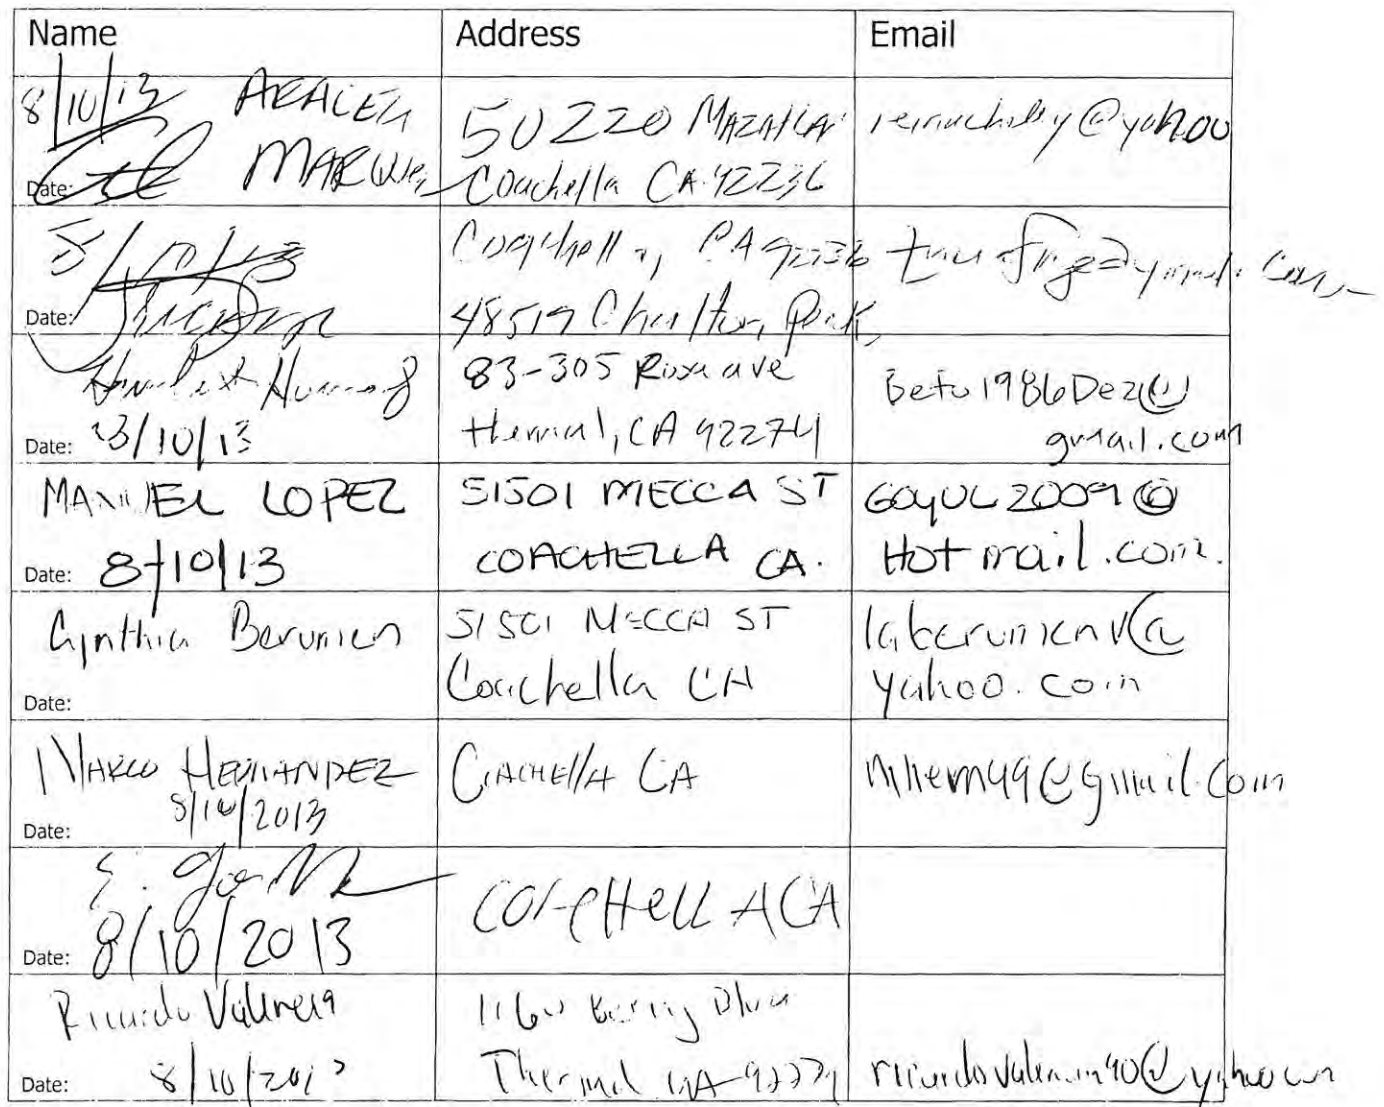 Name Address Email
8/10/13 ARACELI
MARQUEZ
Date:
50220 MAZATLAN
Coachella CA 92236
@yahoo
8/10/13
Date:
Coachella, CA 92236
48519 Charlton Peak
Date: 8/10/13
83-305 Rosa ave
Thermal, CA 92274
Beto1986Dez@
gmail.com
MANUEL LOPEZ
Date: 8/10/13
51501 MECCA ST
COACHELLA CA.
GOYUL2009@
Hotmail.com.
Cynthia Berumen
Date:
51501 MECCA ST
Coachella CA
laberumenv@
yahoo.com
MARCO HERNANDEZ
8/10/2013
Date:
COACHELLA CA
mhern49@gmail.com
Date: 8/10/2013
COACHELLA CA
Ricardo Valencia
Date: 8/10/2013
Thermal CA 92274
ricardovalencia90@yahoo.com